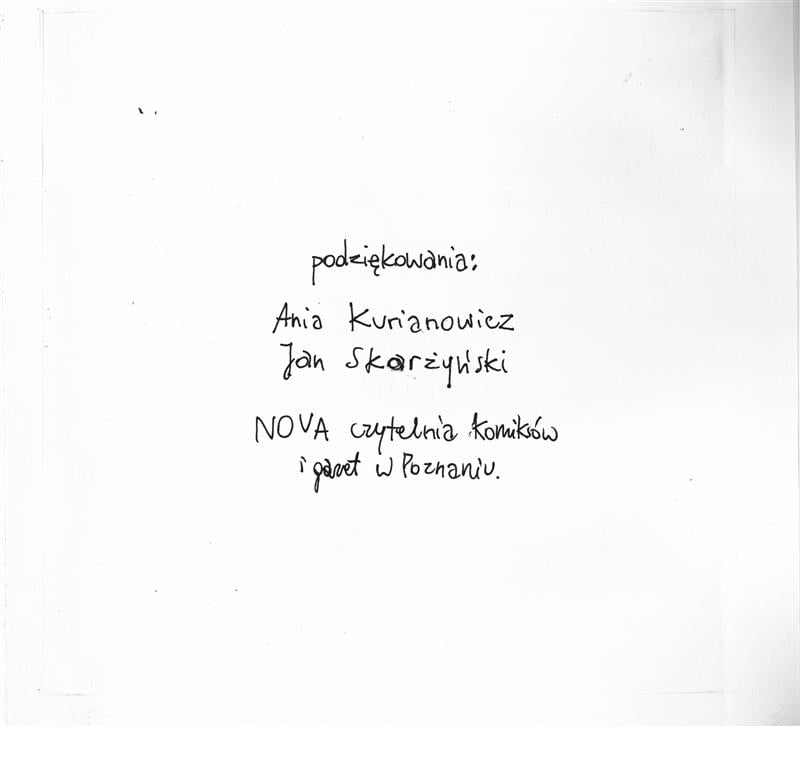 podziękowania:
Ania Kurianowicz
Jan Skarżyński
NOVA czytelnia komiksów
i gazet w Poznaniu.